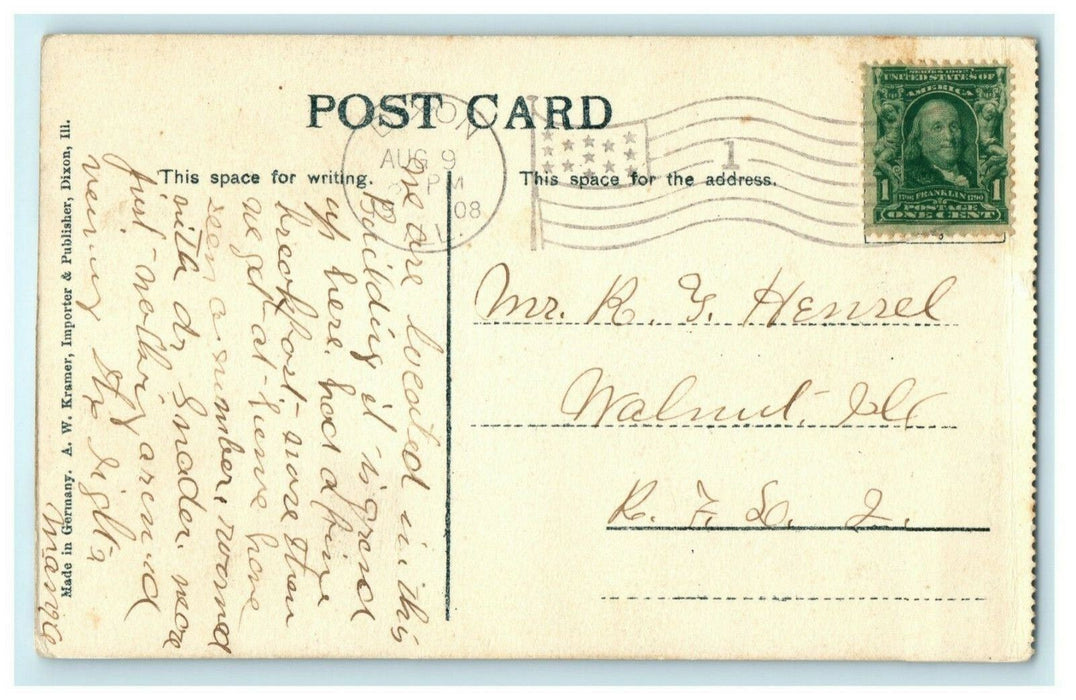 POST CARD
This space for writing.
This space for the address.
DIXON
AUG 9
PM
08
ILL.
1
SERIES 1902
UNITED STATES OF
AMERICA
1 FRANKLIN 1
1706 1790
POSTAGE
ONE CENT
Mr. R. G. Hensel
Walnut, Ills
R. F. D. 2.
We are located in this
Building it is grand
up here. had a fine
breakfast - more than
we get at home have
seen a number, roomed
with dr Snader. were
just nothing around
viewing the sights
Mama
Made in Germany. A. W. Kramer, Importer & Publisher, Dixon, Ill.